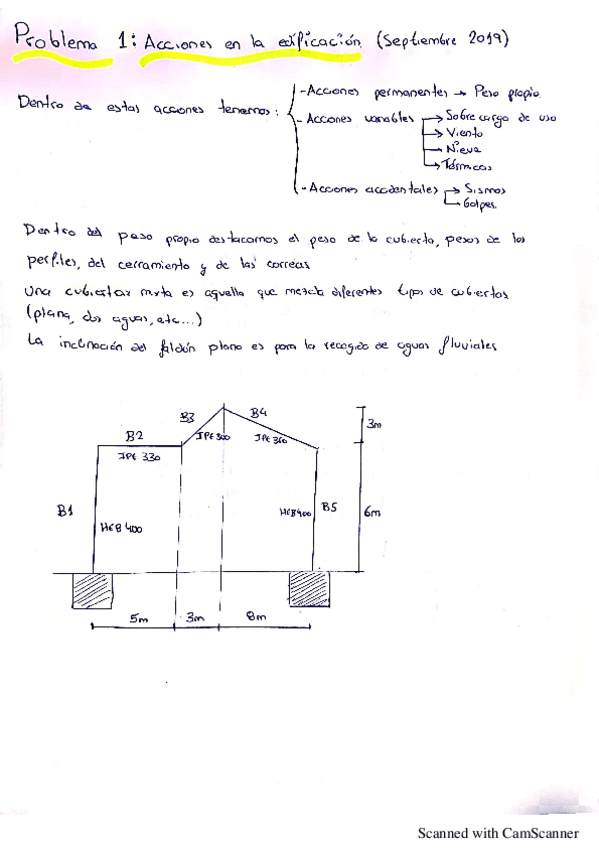 Problema 1: Acciones en la edificación (Septiembre 2019)
-Acciones permanentes → Peso propio
Dentro de estas acciones tenemos:
- Acciones variables → Sobrecarga de uso
→ Viento
→ Nieve
→ Térmicas
- Acciones accidentales → Sismos
Golpes.
Dentro del peso propio destacamos el peso de la cubierta, pesos de los
perfiles, del cerramiento y de las correas
Una cubierta mixta es aquella que mezcla diferentes tipos de cubiertas
(plana, dos aguas, etc...)
La inclinación del faldón plano es para la recogida de aguas fluviales
B3 B4
3m
B2 IPE 300 IPE 360
IPE 330
B1 HEB 400 HEB400 B5 6m
5m 3m 8m
Scanned with CamScanner